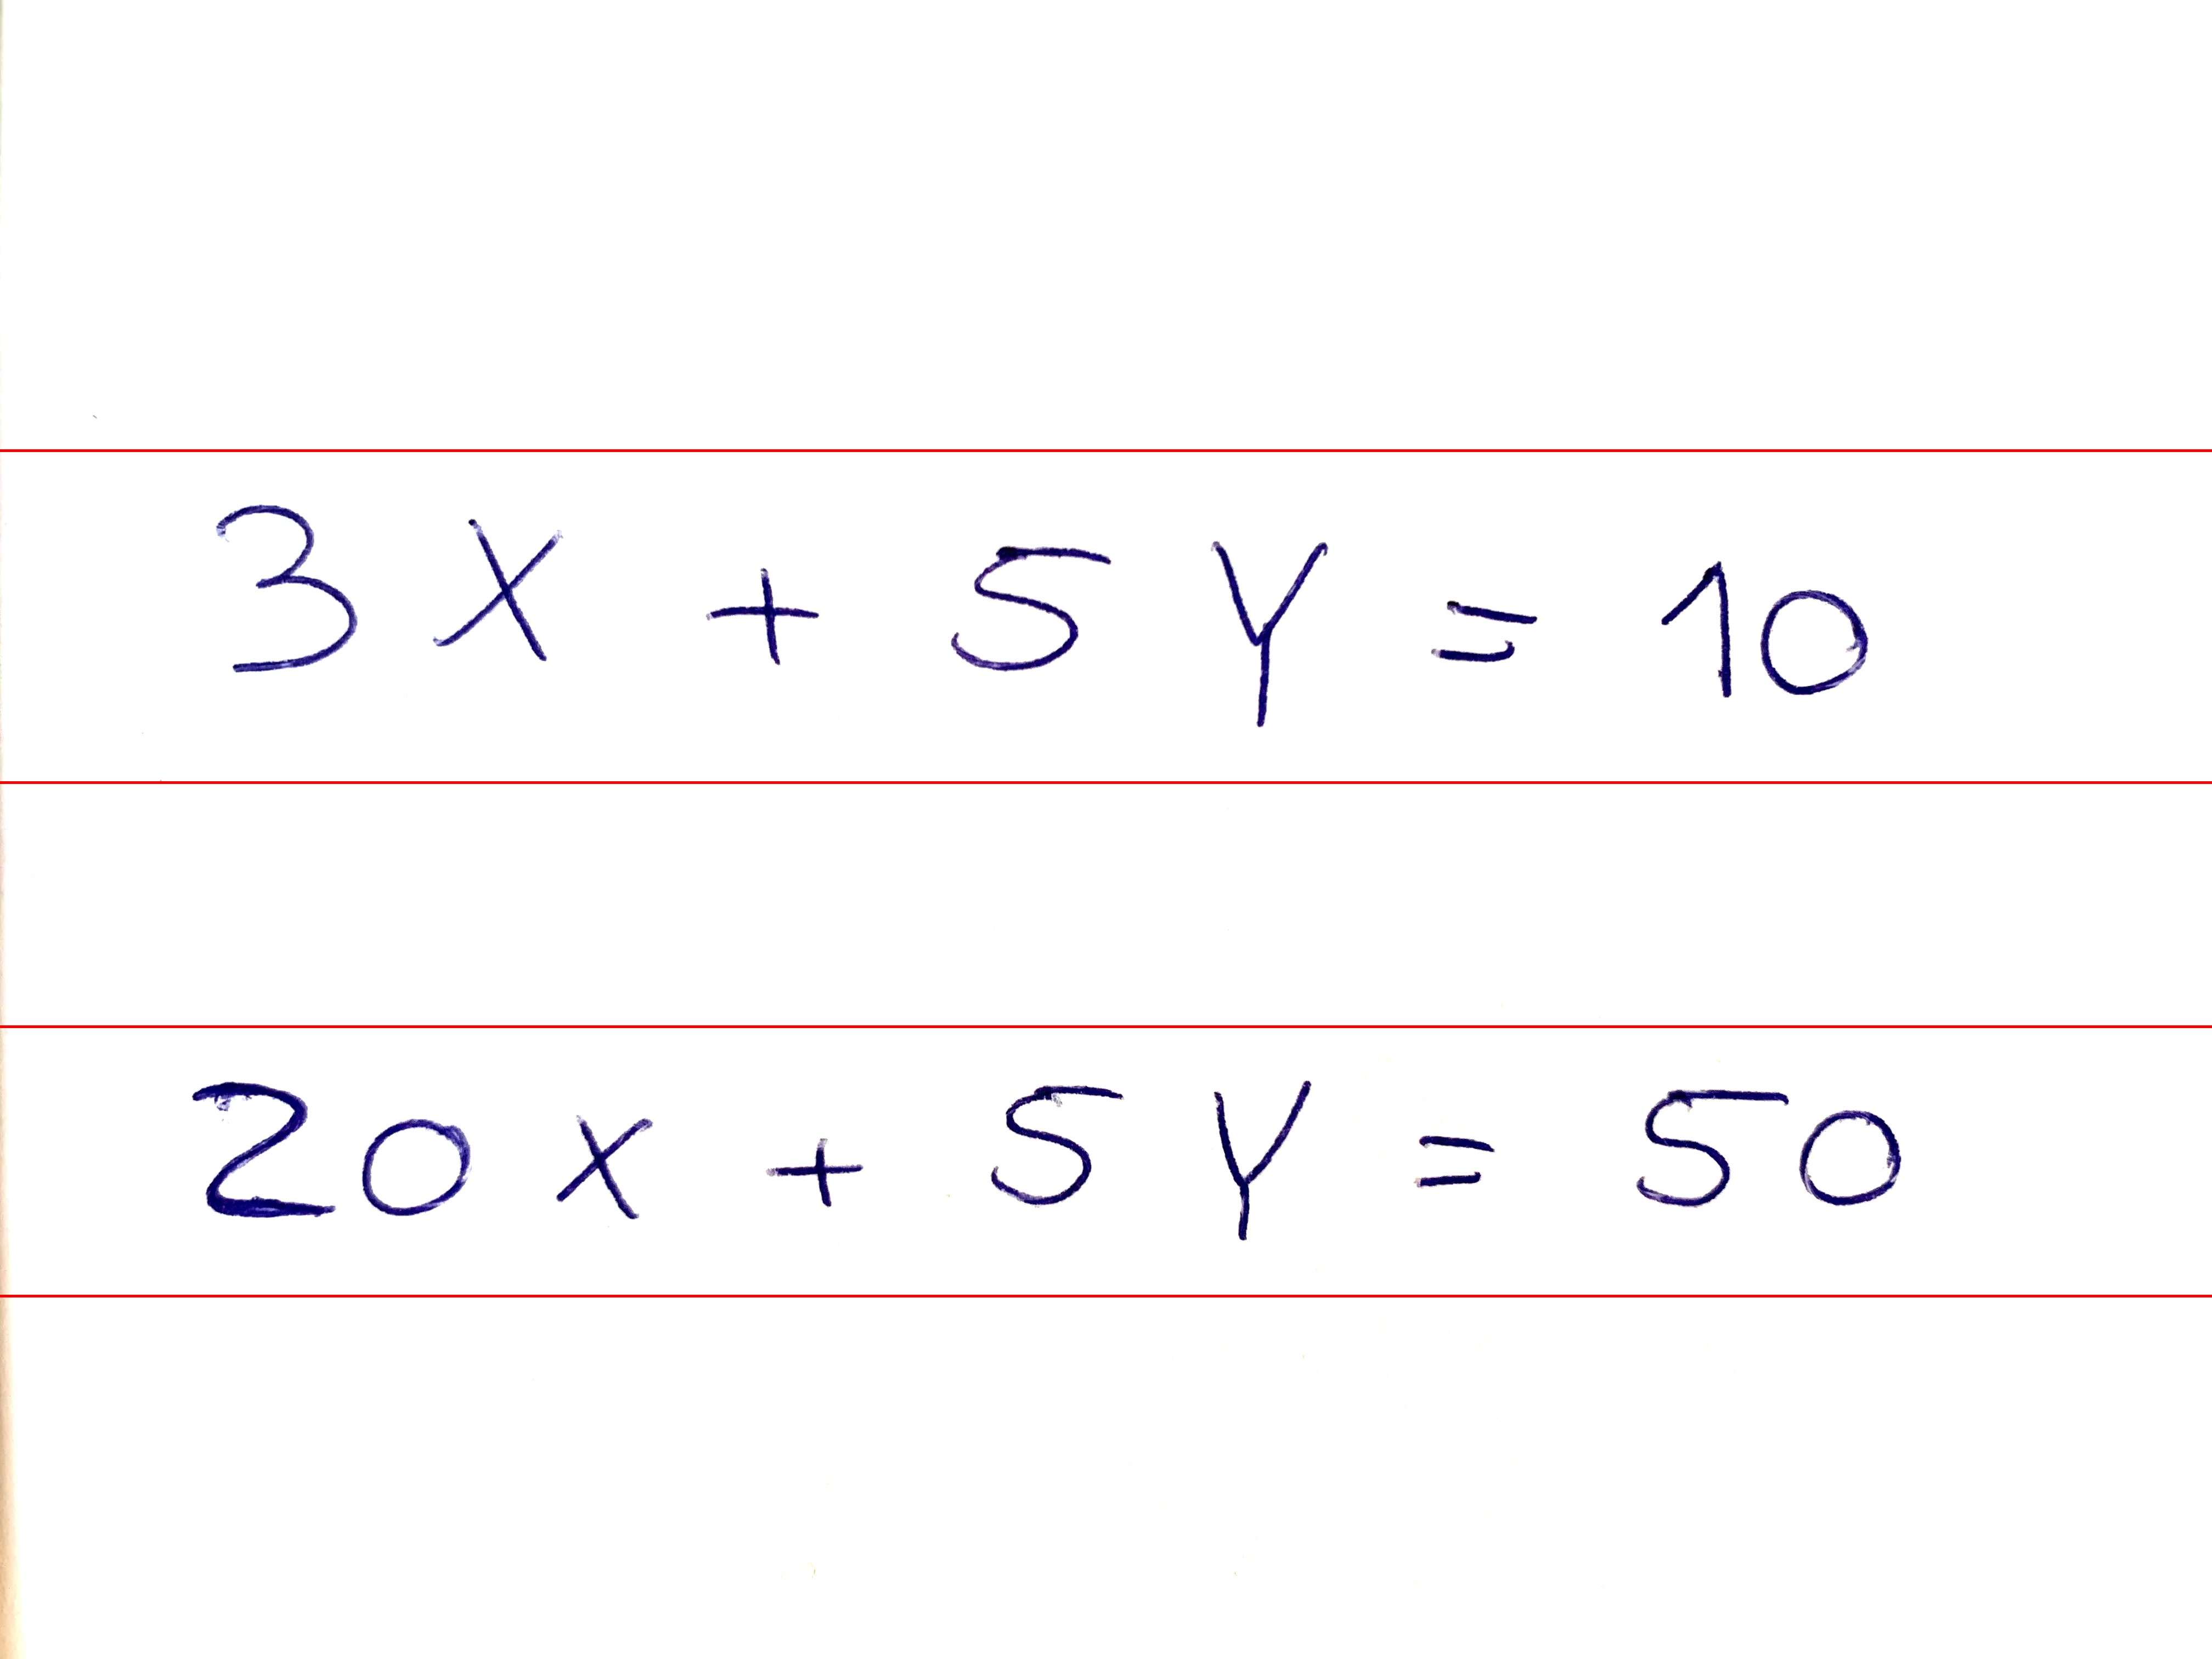 3X + 5Y = 10
20X + 5Y = 50